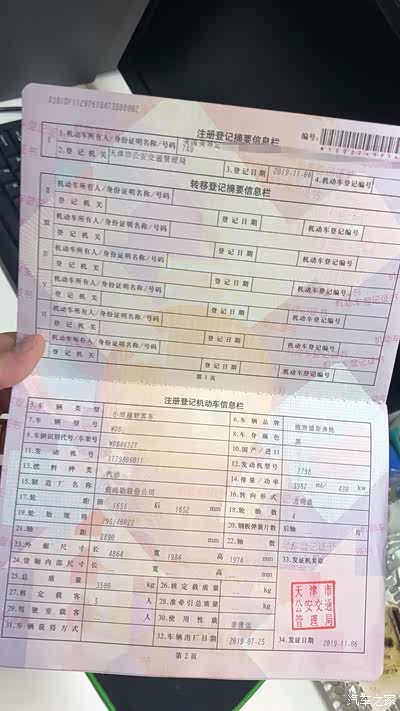 注册登记摘要信息栏
1.机动车所有人/身份证明名称/号码
2.登记机关 天津市公安交通管理局 3.登记日期 2019-11-06 4.机动车登记编号
转移登记摘要信息栏
机动车所有人/身份证明名称/号码
登记机关 登记日期 机动车登记编号
机动车所有人/身份证明名称/号码
登记机关 登记日期 机动车登记编号
机动车所有人/身份证明名称/号码
登记机关 登记日期 机动车登记编号
机动车所有人/身份证明名称/号码
登记机关 登记日期 机动车登记编号
机动车所有人/身份证明名称/号码
登记机关 登记日期 机动车登记编号
机动车所有人/身份证明名称/号码
登记机关 登记日期 机动车登记编号
第1页
注册登记机动车信息栏
5.车辆类型 小型越野客车 6.车辆品牌 梅赛德斯奔驰
7.车辆型号 8.车身颜色 黑
9.车辆识别代号/车架号 10.国产/进口
11.发动机号 12.发动机型号
13.燃料种类 汽油 14.排量/功率 3982 ml/ 430 kw
15.制造厂名称 戴姆勒股份公司 16.转向形式 方向盘
17.轮距 前 1651 后 1652 mm 18.轮胎数 4
19.轮胎规格 20.钢板弹簧片数 后轴 片
21.轴距 2890 mm 22.轴数 2
23.外廓尺寸 长 4864 宽 1984 高 1974 mm 33.发证机关章
24.货厢内部尺寸 长 宽 高 mm
25.总质量 3500 kg 26.核定载质量 kg
27.核定载客 5 人 28.准牵引总质量 kg
29.驾驶室载客 人 30.使用性质 非营运
31.车辆获得方式 32.车辆出厂日期 2019-07-25 34.发证日期 2019-11-06
天津市
公安交通
管理局
第2页
汽车之家